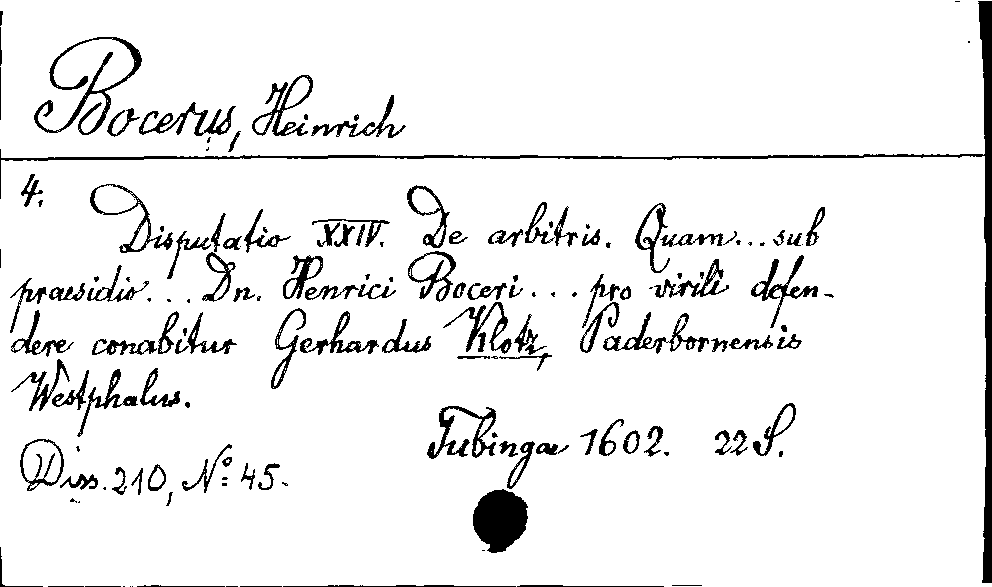 Bocerus, Heinrich
4.
Disputatio XXIV. De arbitris. Quam... sub
praesidio... Dn. Henrici Boceri... pro virili defen-
dere conabitur Gerhardus Klotz, Paderbornensis
Westphalus.
Tubingae 1602. 22 S.
Diss. 210, No: 45.